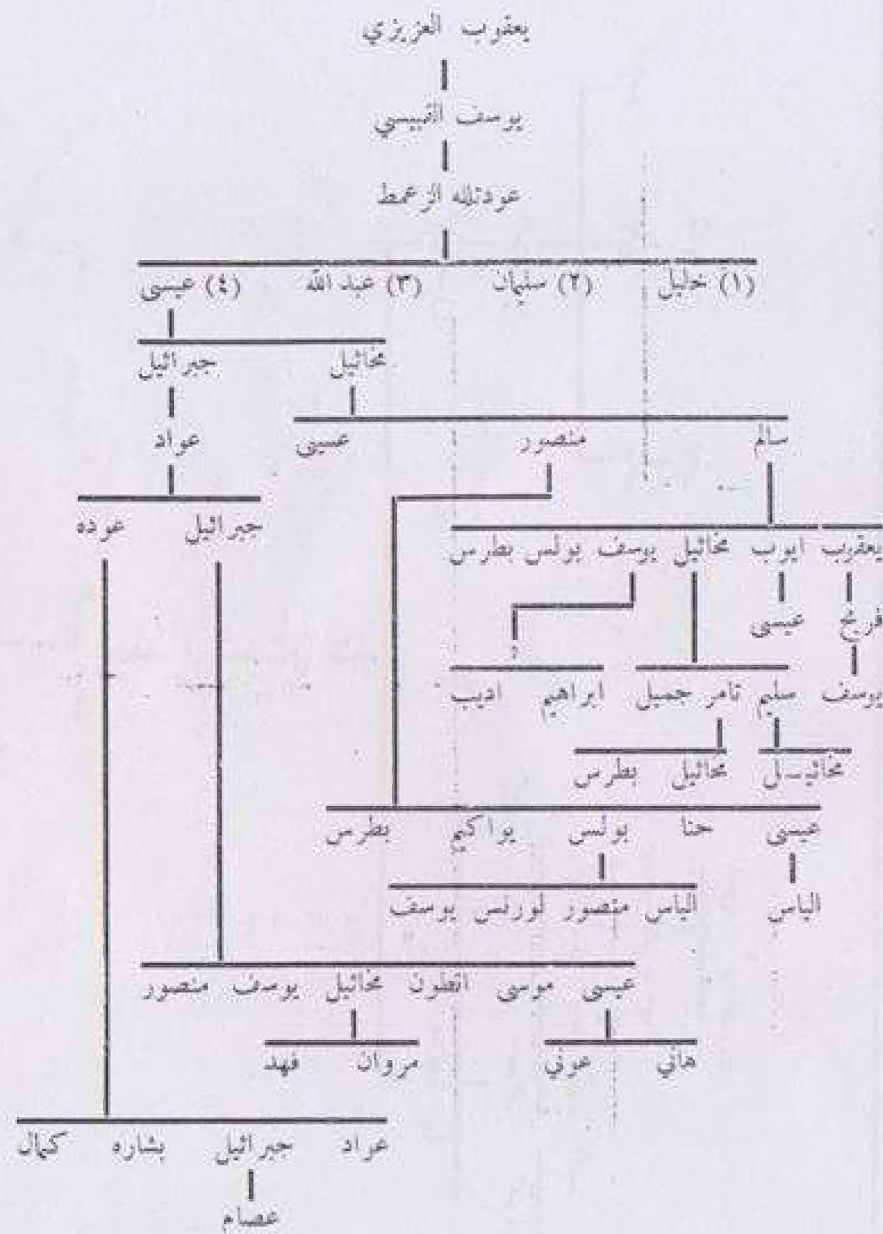 يعقوب العزيزي
يوسف القبيسي
عودتلله الزعمط
(١) خليل (٢) سليمان (٣) عبد الله (٤) عيسى
مخائيل جبرائيل
سالم منصور عيسى عواد
جبرائيل عوده
يعقوب ايوب مخائيل يوسف بولس بطرس
فريح عيسى
يوسف سليم تامر جميل ابراهيم اديب
مخائيـل مخائيل بطرس
عيسى حنا بولس يواكيم بطرس
الياس الياس منصور لورنس يوسف
عيسى موسى انطون مخائيل يوسف منصور
هاني عوني مروان فهد
عواد جبرائيل بشاره كمال
عصام